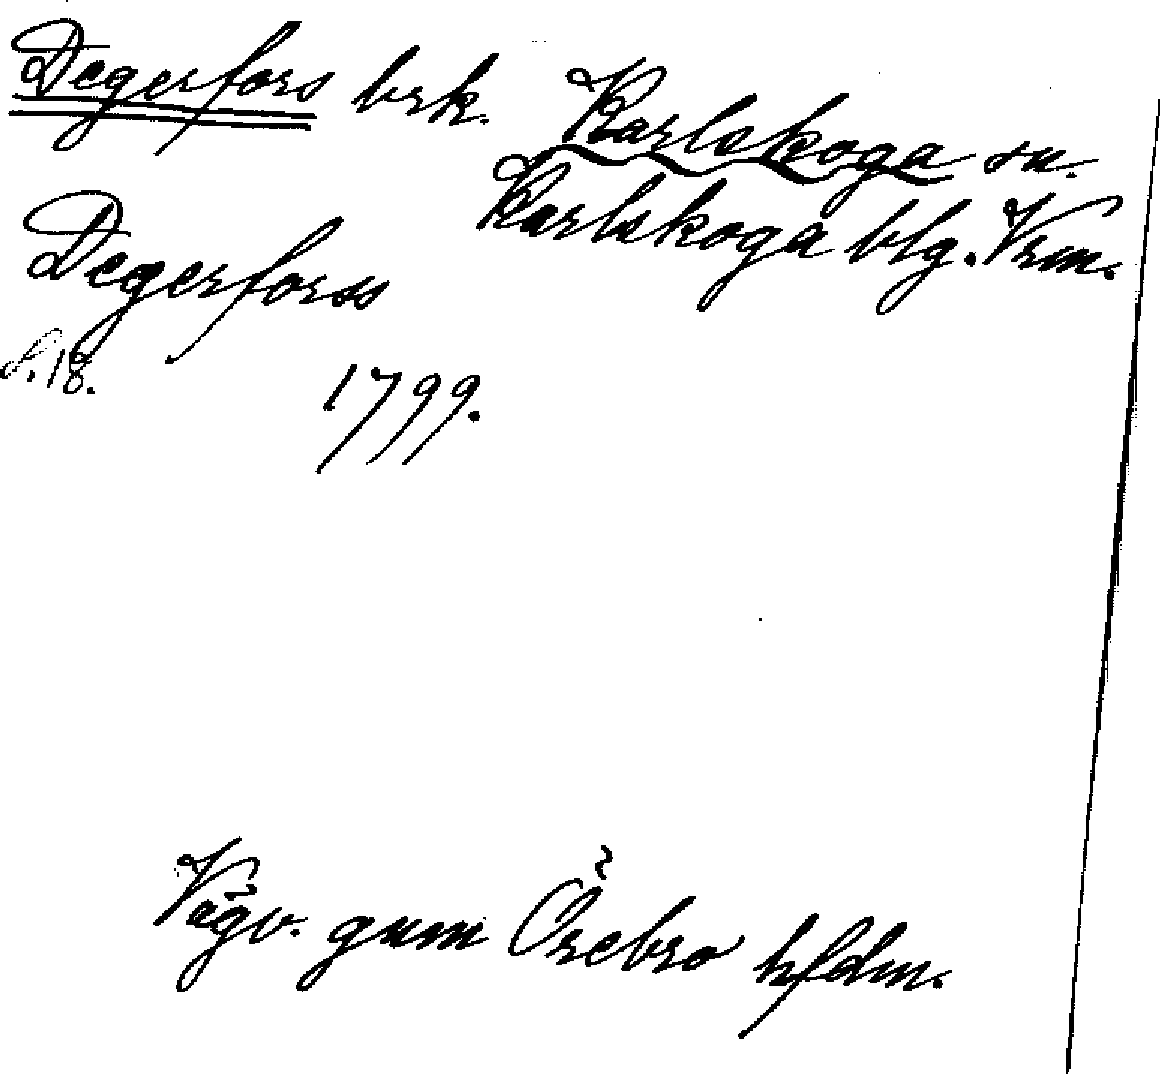 Degerfors brk.
Karlskoga sn.
Karlskoga blg. Vrm.
Degerforss
S. 18.
1799.
Vägv. gnm Örebro hfdm.